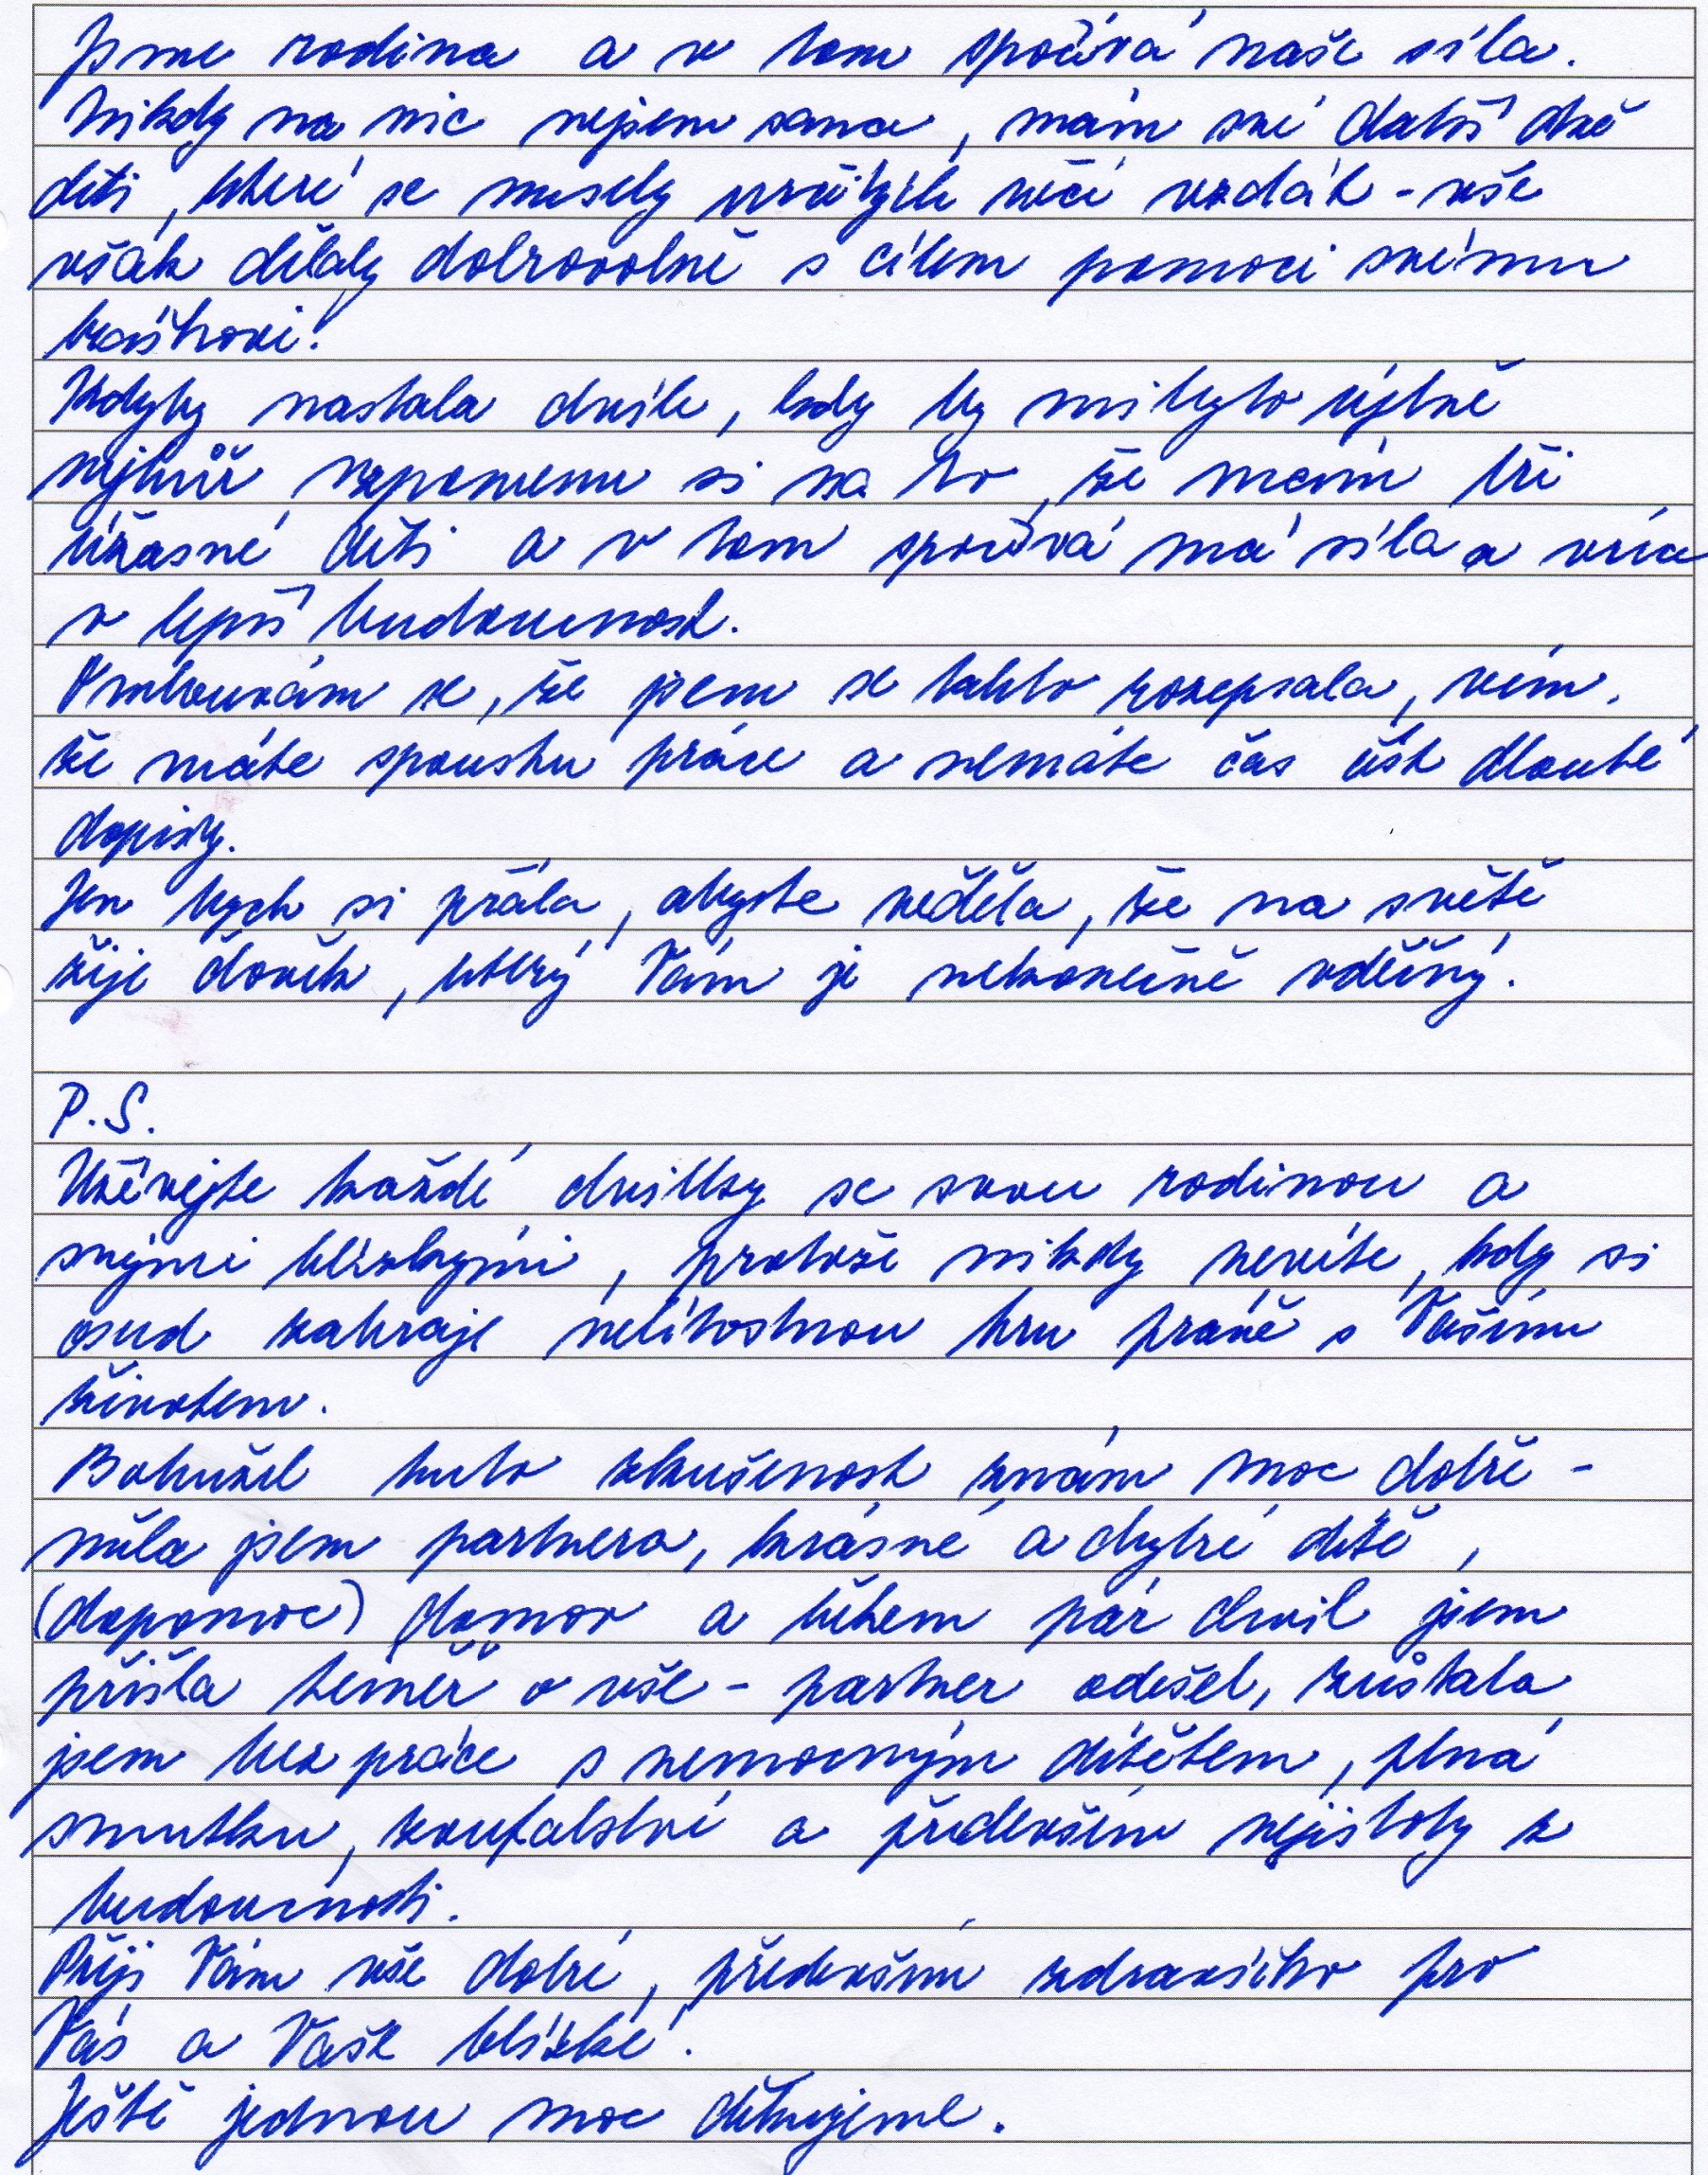 Jsme rodina a v tom spočívá naše síla.
Nikdy na nic nejsem sama, mám své další dvě
děti, které se musely určitých věcí vzdát - vše
však dělaly dobrovolně s cílem pomoci svému
bráškovi!
Kdyby nastala chvíle, kdy by mi bylo úplně
nejhůř, vzpomenu si na to, že mám tři
úžasné děti a v tom spočívá má síla a víra
v lepší budoucnost.
Omlouvám se, že jsem se takto rozepsala, vím,
že máte spoustu práce a nemáte čas číst dlouhé
dopisy.
Jen bych si přála, abyste věděla, že na světě
žije člověk, který Vám je nekonečně vděčný.
P.S.
Užívejte každé chvilky se svou rodinou a
svými blízkými, protože nikdy nevíte, kdy si
osud zahraje nelítostnou hru právě s Vaším
životem.
Bohužel tuto zkušenost znám moc dobře -
měla jsem partnera, krásné a chytré dítě,
(dopomoc) domov a během pár chvil jsem
přišla téměř o vše - partner odešel, zůstala
jsem bez práce s nemocným dítětem, plná
smutku, zoufalství a především nejistoty z
budoucnosti.
Přeji Vám vše dobré, především zdravíčko pro
Vás a Vaše blízké.
Ještě jednou moc děkujeme.